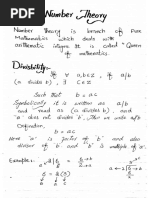 Number Theory
Number theory is branch of Pure
Mathematics which deals with
arithmetic integers. It is called "Queen
of mathematics.
Divisibility:-
If ∀ a,b∈Z, if a/b
(a divides b) ∃ c∈Z
Such that b = ac
Symbolically it is written as a/b
and read as (a divides b) and "a
does not divide b". Then we write a∤b.
Definition, b = ac
Here a is a factor of b and also
divisor of b and b is multiple of a.
Examples:-